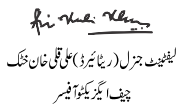 لیفٹیننٹ جنرل (ریٹائرڈ) علی قلی خان خٹک
چیف ایگزیکٹو آفیسر